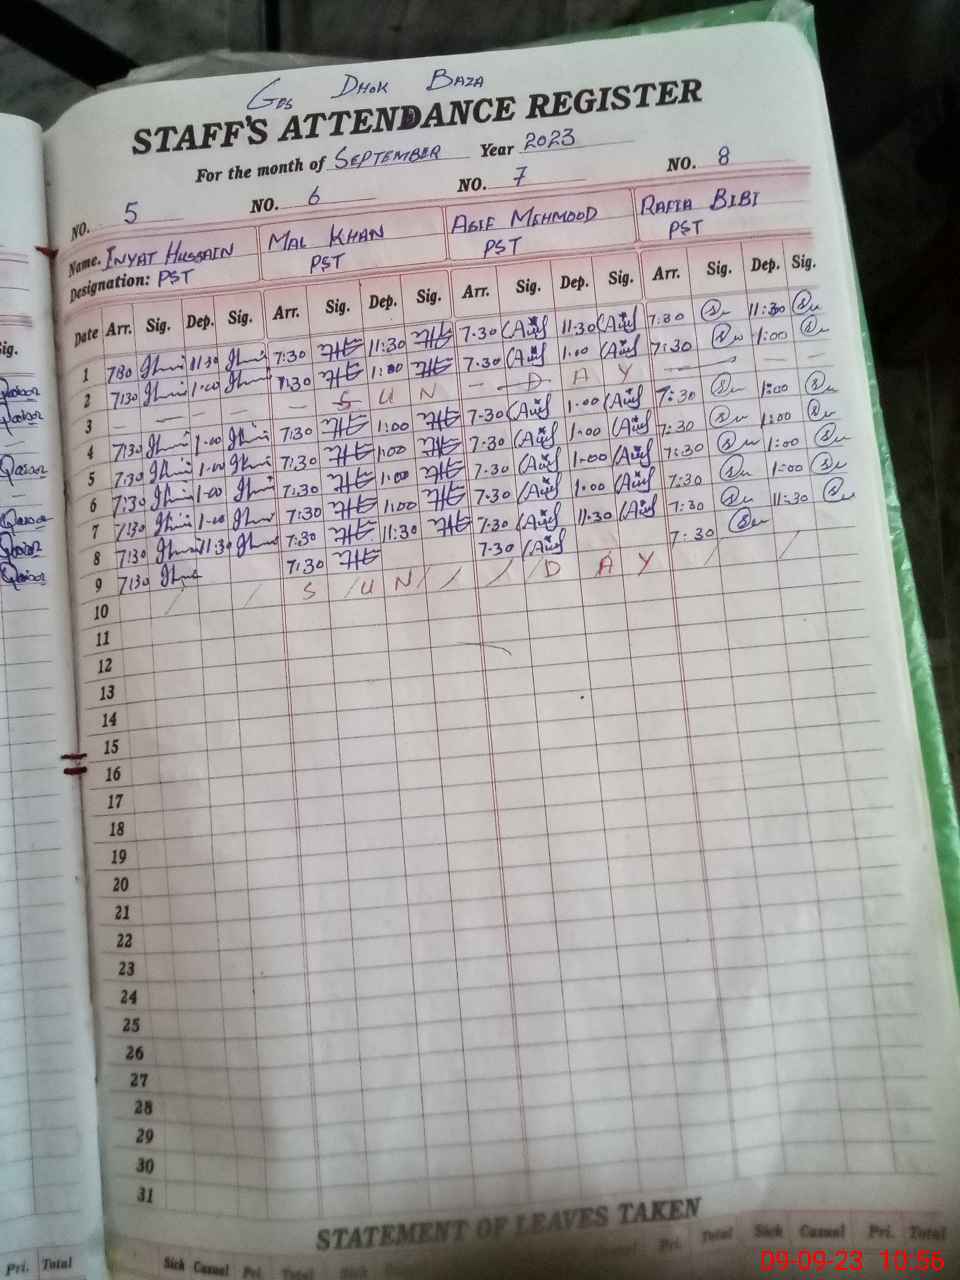 GPS DHOK BAZA
STAFF'S ATTENDANCE REGISTER
For the month of SEPTEMBER Year 2023
NO. 5 NO. 6 NO. 7 NO. 8
Name. INYAT HUSSAIN MAL KHAN ASIF MEHMOOD RAFIA BIBI
Designation: PST PST PST PST
Date Arr. Sig. Dep. Sig. Arr. Sig. Dep. Sig. Arr. Sig. Dep. Sig. Arr. Sig. Dep. Sig.
1 7:30 11:30 7:30 11:30 7:30 11:30 7:30 11:30
2 7:30 1:00 7:30 1:00 7:30 1:00 7:30 1:00
3 SUN DAY
4 7:30 1:00 7:30 1:00 7:30 1:00 7:30 1:00
5 7:30 1:00 7:30 1:00 7:30 1:00 7:30 1:00
6 7:30 1:00 7:30 1:00 7:30 1:00 7:30 1:00
7 7:30 1:00 7:30 1:00 7:30 1:00 7:30 1:00
8 7:30 11:30 7:30 11:30 7:30 11:30 7:30 11:30
9 7:30 7:30 7:30 7:30
10 SUN DAY
11
12
13
14
15
16
17
18
19
20
21
22
23
24
25
26
27
28
29
30
31
STATEMENT OF LEAVES TAKEN
Pri. Total Sick Casual Pri. Total Sick Pri. Total Sick Casual Pri. Total
09-09-23 10:56